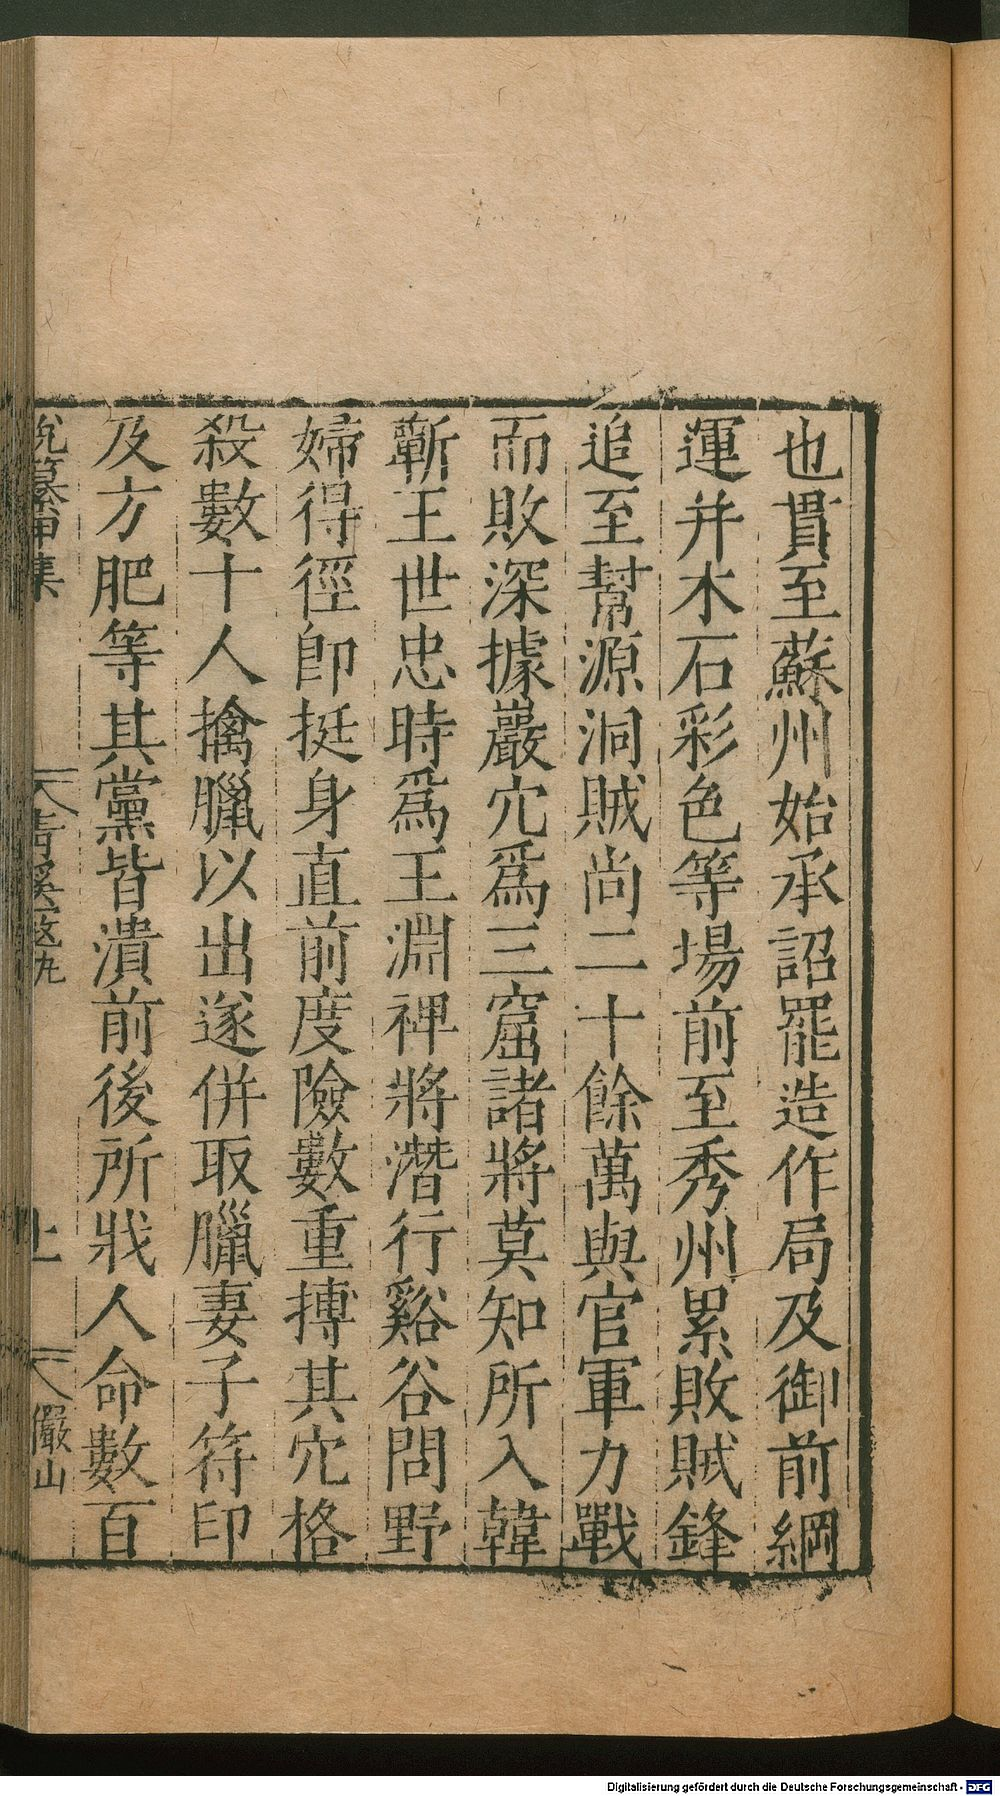 也貫至蘇州始承詔罷造作局及御前綱
運并木石彩色等場前至秀州累敗賊鋒
追至幫源洞賊尚二十餘萬與官軍力戰
而敗深據巖穴爲三窟諸將莫知所入韓
蘄王世忠時爲王淵裨將潛行谿谷問野
婦得徑卽挺身直前度險數重搏其穴格
殺數十人擒臘以出遂併取臘妻子符印
及方肥等其黨皆潰前後所戕人命數百
集
青溪寇九
上
儼山
Digitalisierung gefördert durch die Deutsche Forschungsgemeinschaft - DFG